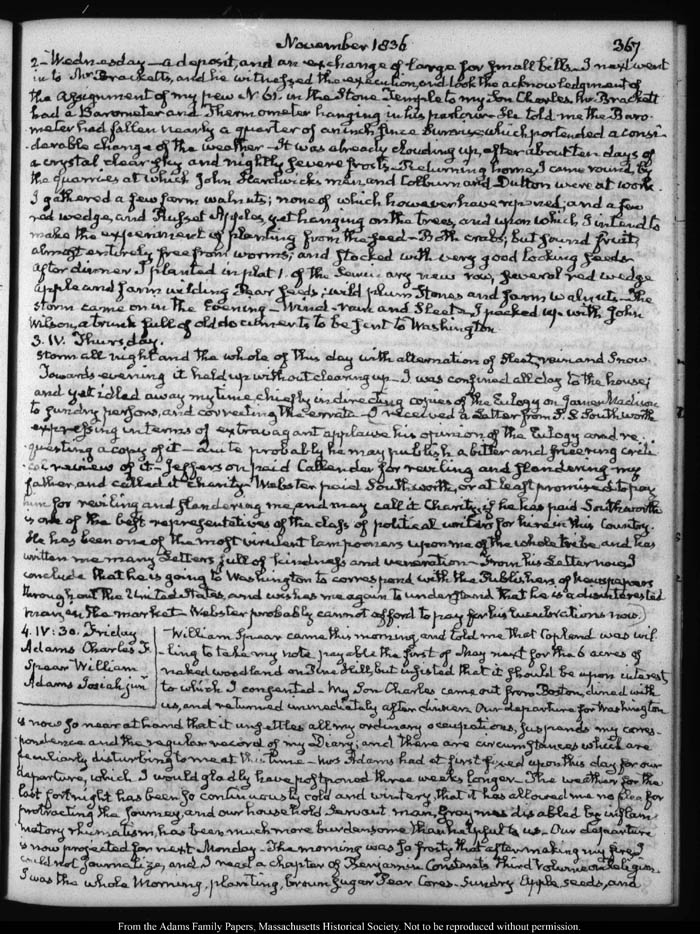 November 1836 367
2 - Wednesday - a deposit, and an exchange of large for small bills - I next went
in to Mr. Bracketts, and he witnessed the execution, and took the acknowledgment of
the Assignment of my pew N. 61. in the Stone Temple to my Son Charles. Mr. Brackett
had a Barometer and Thermometer hanging in his parlour - He told me the Baro-
meter had fallen nearly a quarter of an inch, since Sunrise which portended a consi-
derable change of the weather - It was already clouding up, after about ten days of
a crystal clear sky and nightly severe frosts - Returning home, I came round, by
the quarries at which John Hardwicks men, and Colburn and Dutton were at work.
I gathered a few farm walnuts; none of which however have ripened; and a few
red wedge, and Russet Apples, yet hanging on the trees, and upon which I intend to
make the experiment of planting from the seed - Both crabs; but sound fruit,
almost entirely free from worms, and stocked with very good looking seeds
After dinner I planted in plat 1. of the Seminary new row, several red wedge
apple and farm wilding Pear seeds; wild plum Stones and farm walnuts - The
storm came on in the Evening - Wind - rain and Sleet - I packed up with John
Wilson, a trunk full of old documents to be sent to Washington
3. IV. Thursday.
Storm all night and the whole of this day with alternation of Sleet, rain and Snow.
Towards evening it held up without clearing up - I was confined all day to the house;
and yet idled away my time, chiefly in directing copies of the Eulogy on James Madison
to sundry persons, and correcting the errata - I received a Letter from S. L. Southworth
expressing in terms of extravagant applause his opinion of the Eulogy and re-
questing a copy of it - Quite probably he may publish a bitter and sneering criti-
cal review of it - Jefferson paid Callender for reviling and slandering my
father, and called it Charity - Webster paid Southworth, or at least promised to pay
him for reviling and slandering me and may call it Charity if he has paid Southworth
is one of the best representatives of the class of political writers for hire in this Country.
He has been one of the most virulent lampooners upon me of the whole tribe and has
written me many Letters full of kindness and veneration - From his Letter now I
conclude that he is going to Washington to correspond with the Publishers of newspapers
throughout the United States, and wishes me again to understand that he is a disinterested
man, in the market - Webster probably cannot afford to pay for his lucubrations now.
4. IV: 30. Friday
Adams Charles F.
Spear William
Adams Josiah jun
William Spear came this morning, and told me that Copland was wil-
ling to take my note payable the first of May next for the 6 acres of
naked woodland on Pine Hill, but insisted that it should be upon interest
to which I consented - My Son Charles came out from Boston, dined with
us, and returned immediately after dinner. Our departure for Washington
is now so near at hand that it unsettles all my ordinary occupations, suspends my corres-
pondence and the regular record of my Diary; and there are circumstances which are
peculiarly disturbing to me at this time - Mrs Adams had at first fixed upon this day for our
departure, which I would gladly have postponed three weeks longer - The weather for the
last fortnight has been so continuously cold and wintery, that it has allowed me no plea for
protracting the Journey, and our household servant man, Gray, disabled by inflam-
matory rhumatism, has been much more burdensome than helpful to us - Our departure
is now projected for next Monday - The morning was so frosty that after making my fire I
could not Journalize, and I read a chapter of Benjamin Constants Third Volume on Religion.
I was the whole Morning, planting, brown Sugar Pear Cores. Sundry Apple seeds, and
From the Adams Family Papers, Massachusetts Historical Society. Not to be reproduced without permission.